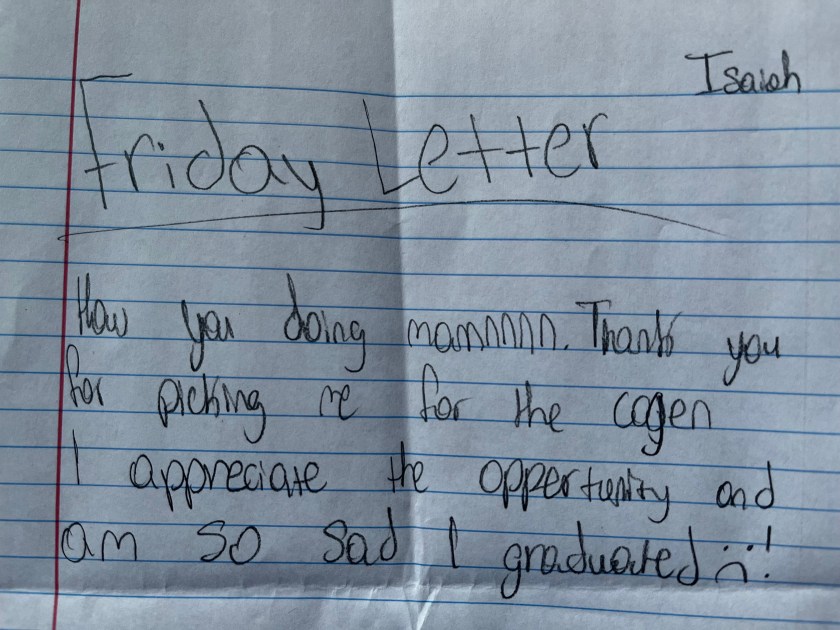 Isaiah
Friday Letter
How you doing mamnnnn. Thanks you
for picking me for the cogen
I appreciate the oppertunity and
am so sad I graduated :(!